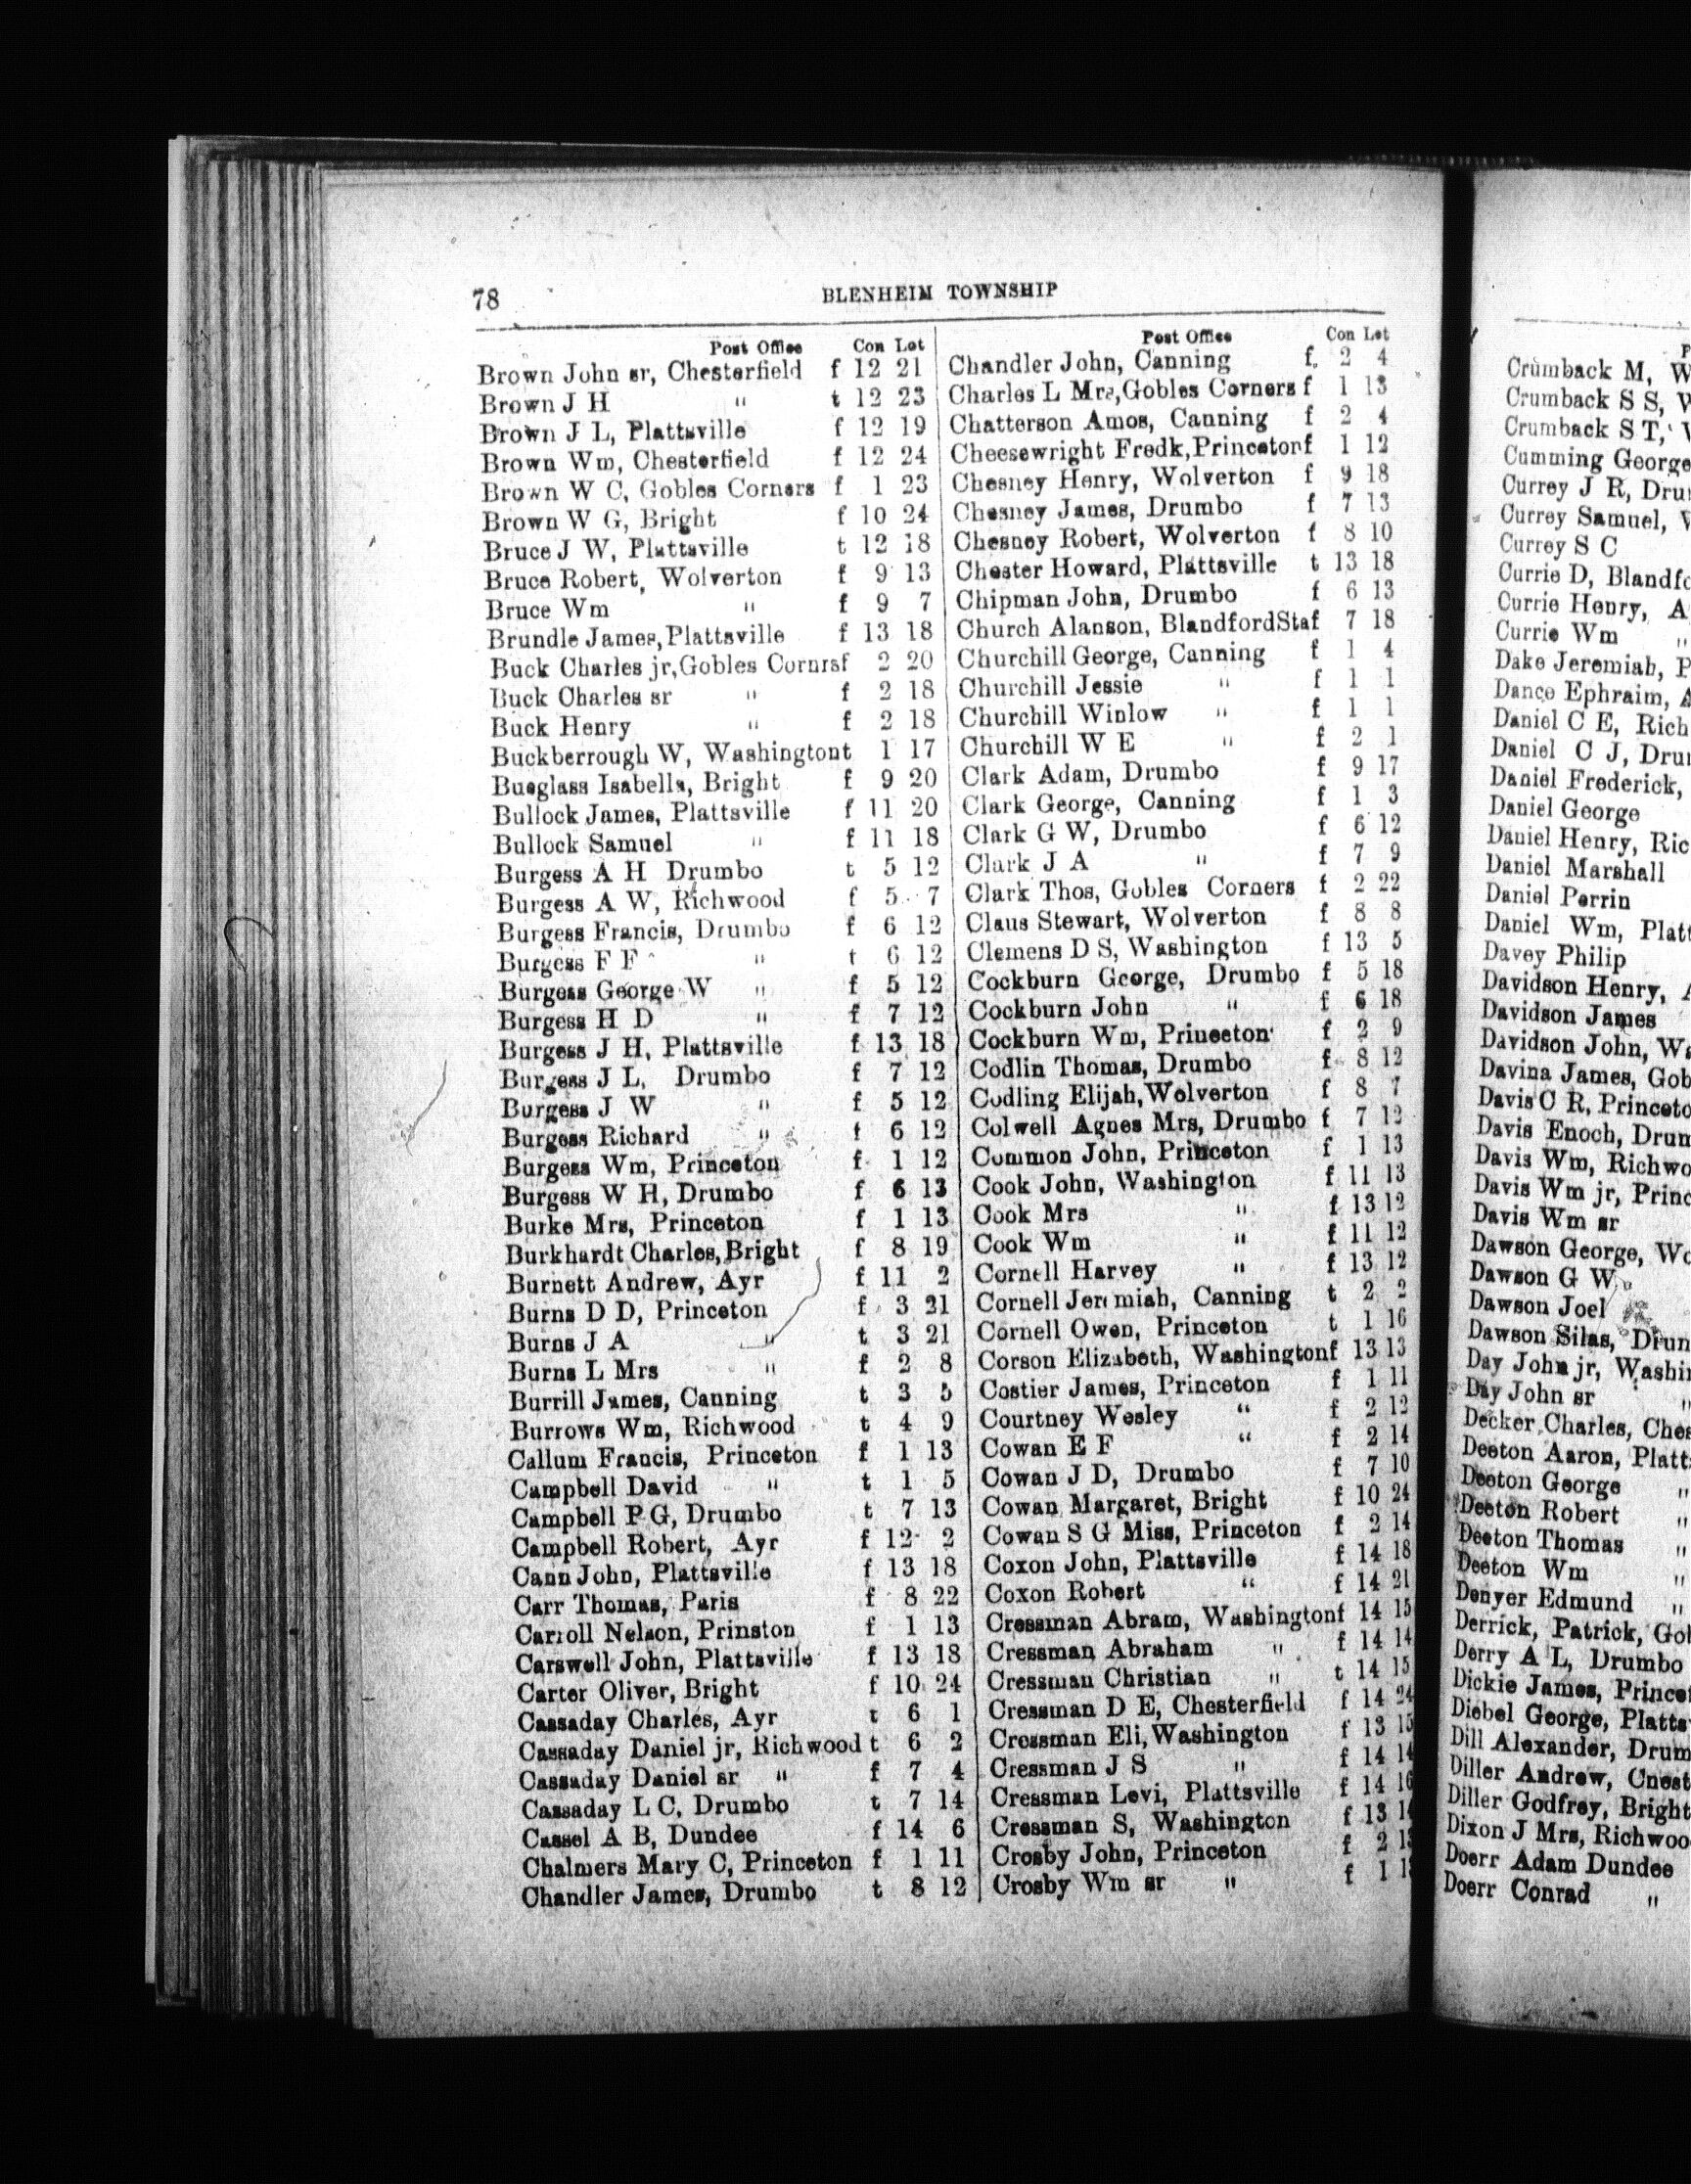 78
BLENHEIM TOWNSHIP
Post Office Con Lot
Brown John sr, Chesterfield f 12 21
Brown J H " t 12 23
Brown J L, Plattsville f 12 19
Brown Wm, Chesterfield f 12 24
Brown W C, Gobles Corners f 1 23
Brown W G, Bright f 10 24
Bruce J W, Plattsville t 12 18
Bruce Robert, Wolverton f 9 13
Bruce Wm " f 9 7
Brundle James, Plattsville f 13 18
Buck Charles jr, Gobles Cornrsf 2 20
Buck Charles sr " f 2 18
Buck Henry " f 2 18
Buckberrough W, Washingtont 1 17
Bueglass Isabella, Bright f 9 20
Bullock James, Plattsville f 11 20
Bullock Samuel " f 11 18
Burgess A H Drumbo t 5 12
Burgess A W, Richwood f 5 7
Burgess Francis, Drumbo f 6 12
Burgess F F " t 6 12
Burgess George W " f 5 12
Burgess H D " f 7 12
Burgess J H, Plattsville f 13 18
Burgess J L, Drumbo f 7 12
Burgess J W " f 5 12
Burgess Richard " f 6 12
Burgess Wm, Princeton f 1 12
Burgess W H, Drumbo f 6 13
Burke Mrs, Princeton f 1 13
Burkhardt Charles, Bright f 8 19
Burnett Andrew, Ayr f 11 2
Burns D D, Princeton f 3 21
Burns J A " t 3 21
Burns L Mrs " f 2 8
Burrill James, Canning t 3 5
Burrows Wm, Richwood t 4 9
Callum Francis, Princeton f 1 13
Campbell David " t 1 5
Campbell P G, Drumbo t 7 13
Campbell Robert, Ayr f 12 2
Cann John, Plattsville f 13 18
Carr Thomas, Paris f 8 22
Carroll Nelson, Prinston f 1 13
Carswell John, Plattsville f 13 18
Carter Oliver, Bright f 10 24
Cassaday Charles, Ayr t 6 1
Cassaday Daniel jr, Richwood t 6 2
Cassaday Daniel sr " f 7 4
Cassaday L C, Drumbo t 7 14
Cassel A B, Dundee f 14 6
Chalmers Mary C, Princeton f 1 11
Chandler James, Drumbo t 8 12
Post Office Con Lot
Chandler John, Canning f. 2 4
Charles L Mrs, Gobles Corners f 1 13
Chatterson Amos, Canning f 2 4
Cheesewright Fredk, Princetonf 1 12
Chesney Henry, Wolverton f 9 18
Chesney James, Drumbo f 7 13
Chesney Robert, Wolverton f 8 10
Chester Howard, Plattsville t 13 18
Chipman John, Drumbo f 6 13
Church Alanson, BlandfordStaf 7 18
Churchill George, Canning f 1 4
Churchill Jessie " f 1 1
Churchill Winlow " f 1 1
Churchill W E " f 2 1
Clark Adam, Drumbo f 9 17
Clark George, Canning f 1 3
Clark G W, Drumbo f 6 12
Clark J A " f 7 9
Clark Thos, Gobles Corners f 2 22
Claus Stewart, Wolverton f 8 8
Clemens D S, Washington f 13 5
Cockburn George, Drumbo f 5 18
Cockburn John " f 6 18
Cockburn Wm, Priueeton f 2 9
Codlin Thomas, Drumbo f 8 12
Codling Elijah, Wolverton f 8 7
Colwell Agnes Mrs, Drumbo f 7 12
Common John, Princeton f 1 13
Cook John, Washington f 11 13
Cook Mrs " f 13 12
Cook Wm " f 11 12
Cornell Harvey " f 13 12
Cornell Jeremiah, Canning t 2 2
Cornell Owen, Princeton t 1 16
Corson Elizabeth, Washingtonf 13 13
Costier James, Princeton f 1 11
Courtney Wesley " f 2 12
Cowan E F " f 2 14
Cowan J D, Drumbo f 7 10
Cowan Margaret, Bright f 10 24
Cowan S G Miss, Princeton f 2 14
Coxon John, Plattsville f 14 18
Coxon Robert " f 14 21
Cressman Abram, Washingtonf 14 15
Cressman Abraham " f 14 14
Cressman Christian " t 14 15
Cressman D E, Chesterfield f 14 24
Cressman Eli, Washington f 13 15
Cressman J S " f 14 14
Cressman Levi, Plattsville f 14 16
Cressman S, Washington f 13
Crosby John, Princeton f 2
Crosby Wm sr " f 1
Crumback M, W
Crumback S S, W
Crumback S T,
Cumming George
Currey J R, Dru
Currey Samuel,
Currey S C
Currie D, Blandfo
Currie Henry, A
Currie Wm "
Dake Jeremiah, P
Dance Ephraim, A
Daniel C E, Rich
Daniel C J, Dru
Daniel Frederick,
Daniel George
Daniel Henry, Ric
Daniel Marshall
Daniel Perrin
Daniel Wm, Platt
Davey Philip
Davidson Henry, A
Davidson James
Davidson John, Wa
Davina James, Gob
Davis C R, Princeto
Davis Enoch, Drum
Davis Wm, Richwo
Davis Wm jr, Princ
Davis Wm sr
Dawson George, Wo
Dawson G W
Dawson Joel
Dawson Silas, Drun
Day John jr, Washin
Day John sr "
Decker Charles, Ches
Deeton Aaron, Platts
Deeton George "
Deeton Robert "
Deeton Thomas "
Deeton Wm "
Denyer Edmund "
Derrick, Patrick, Gol
Derry A L, Drumbo
Dickie James, Princet
Diebel George, Platts
Dill Alexander, Drum
Diller Andrew, Chest
Diller Godfrey, Bright
Dixon J Mrs, Richwoo
Doerr Adam Dundee
Doerr Conrad "